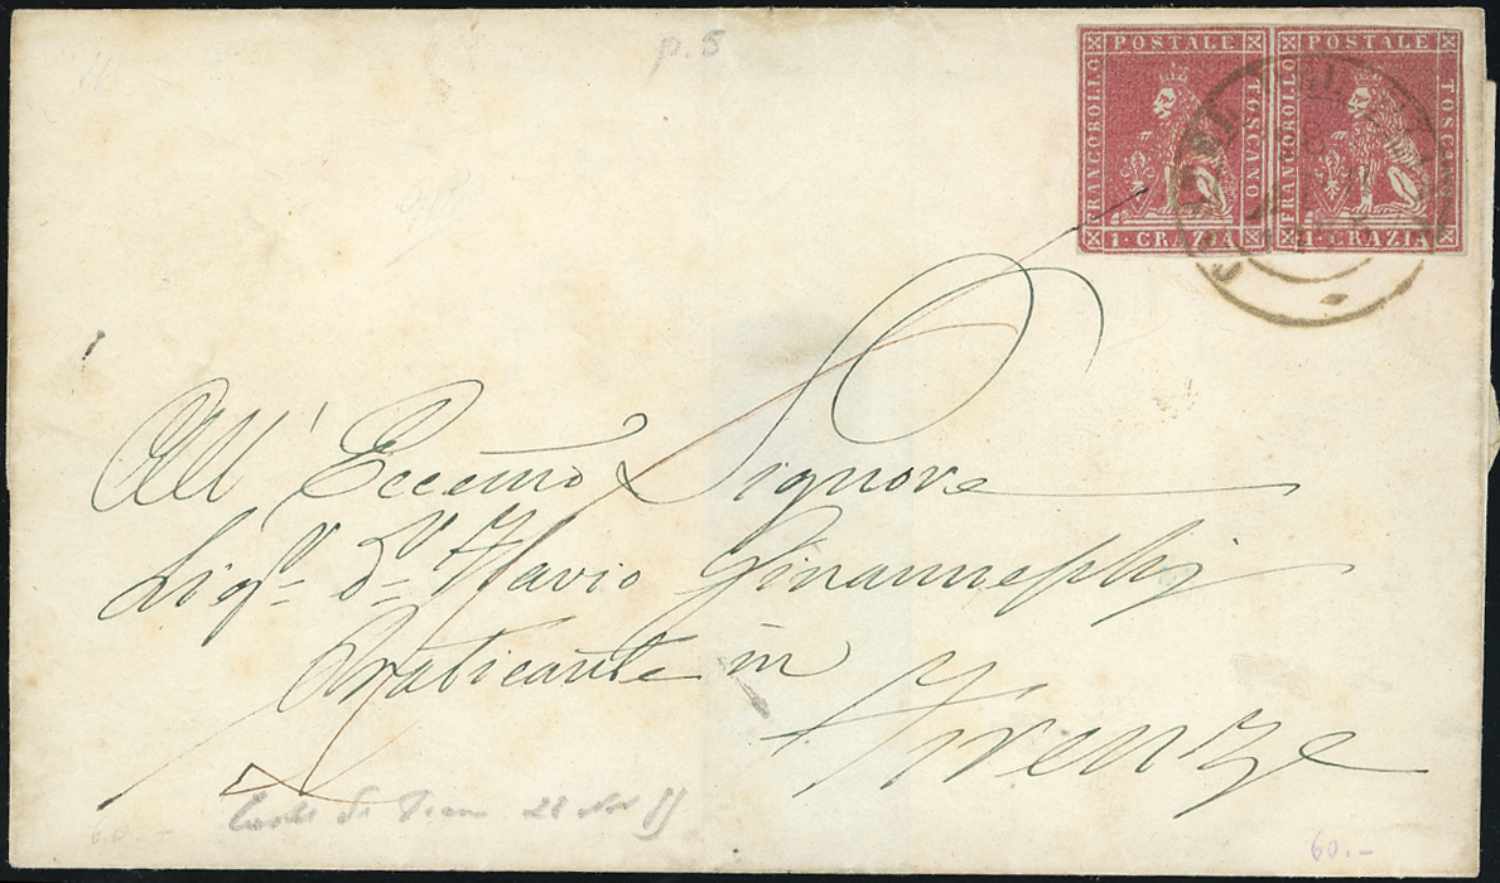 p. 5
POSTALE
FRANCOBOLLO
TOSCANO
1 • CRAZIA
POSTALE
FRANCOBOLLO
TOSCANO
1 • CRAZIA
All' Eccemo Signore
Sigr Dr Flavio Ginanneschi
Praticante in
Firenze
28 Nov 55
60.-
60.-